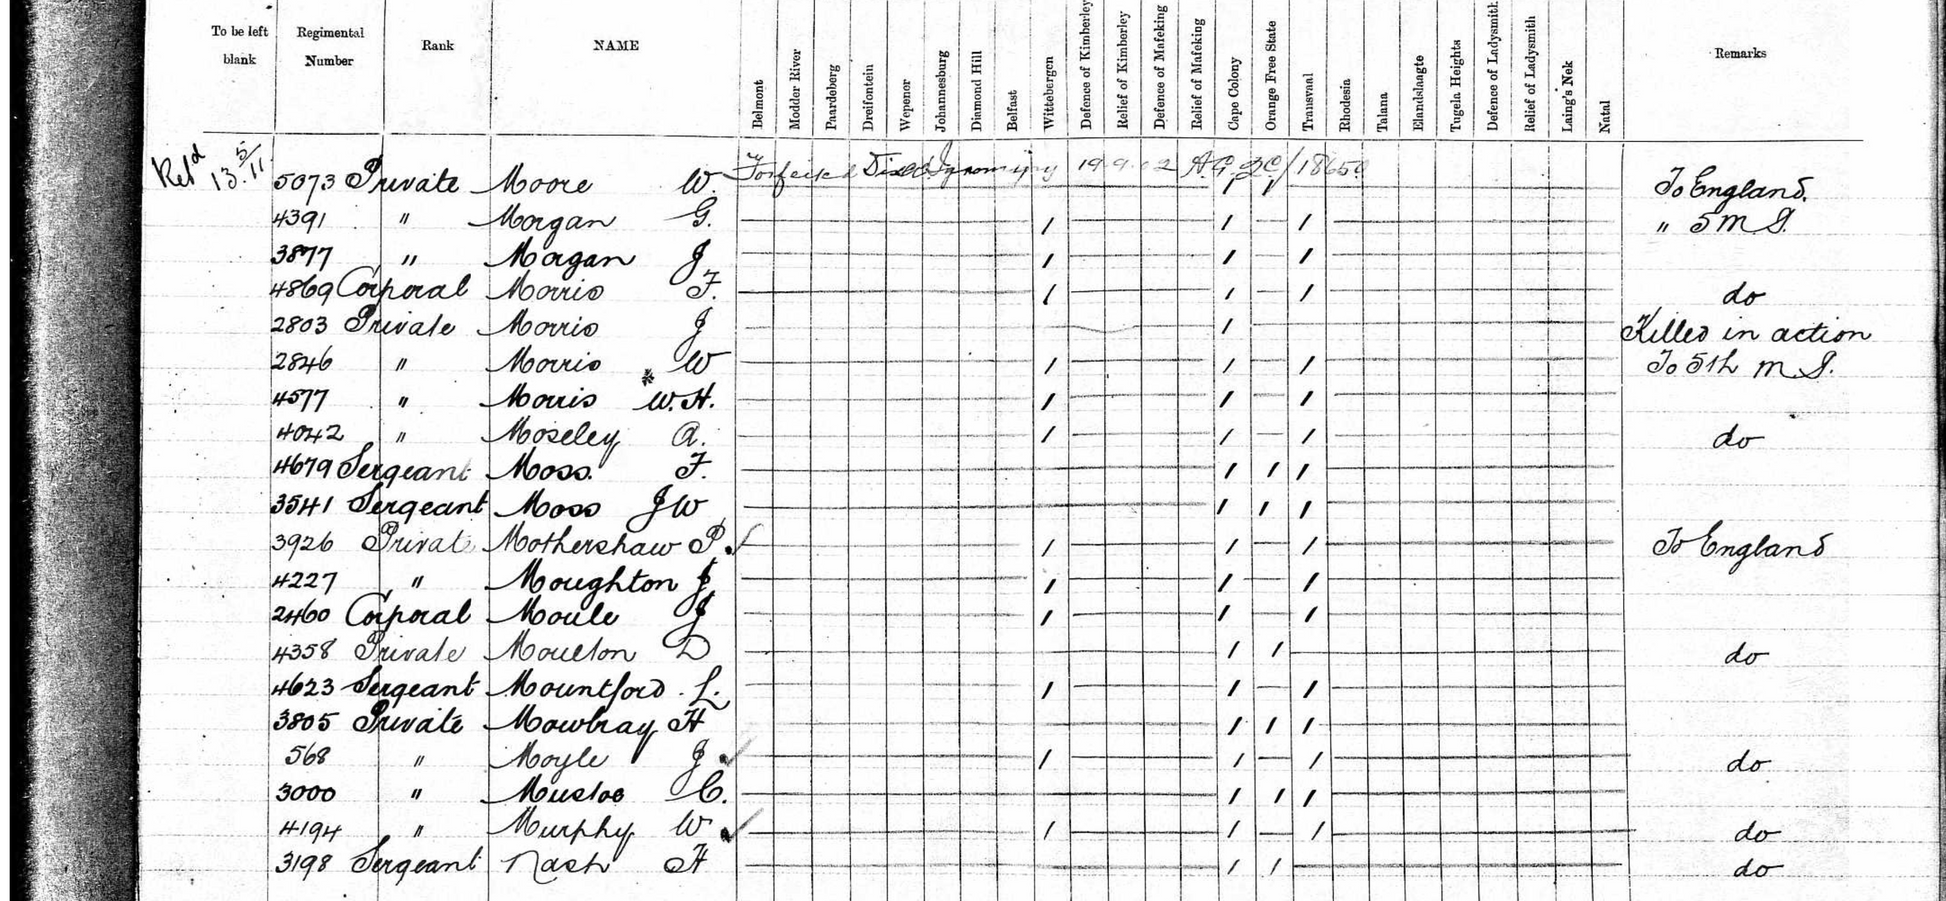 To be left blank Regimental Number Rank NAME Belmont Modder River Paardeberg Dreifontein Wepener Johannesburg Diamond Hill Belfast Wittebergen Defence of Kimberley Relief of Kimberley Defence of Mafeking Relief of Mafeking Cape Colony Orange Free State Transvaal Rhodesia Talana Elandslaagte Tugela Heights Defence of Ladysmith Relief of Ladysmith Laing's Nek Natal Remarks
Retd 13.5/11 5073 Private Moore W. Forfeited Discd Ignominy 19.9.02 / / To England.
4391 " Morgan G. / / / " 5 M.I.
3877 " Morgan J / / /
4869 Corporal Morris F. / / / do
2803 Private Morris J / Killed in action
2846 " Morris W / / / To 5th M.I.
4577 " Morris * W.H. / / /
4042 " Moseley A. / / / do
4679 Sergeant Moss. F. / / /
3541 Sergeant Moss JW / / /
3926 Private Mothershaw P. ✓ / / / To England
4227 " Moughton J / / /
2460 Corporal Moule J / / /
4358 Private Moulton D / / do
4623 Sergeant Mountford . L. / / /
3805 Private Mowbray H / / /
568 " Moyle J ✓ / / / do
3000 " Mustoe C. / / /
4194 " Murphy W ✓ / / / do
3198 Sergeant Nash H / / do